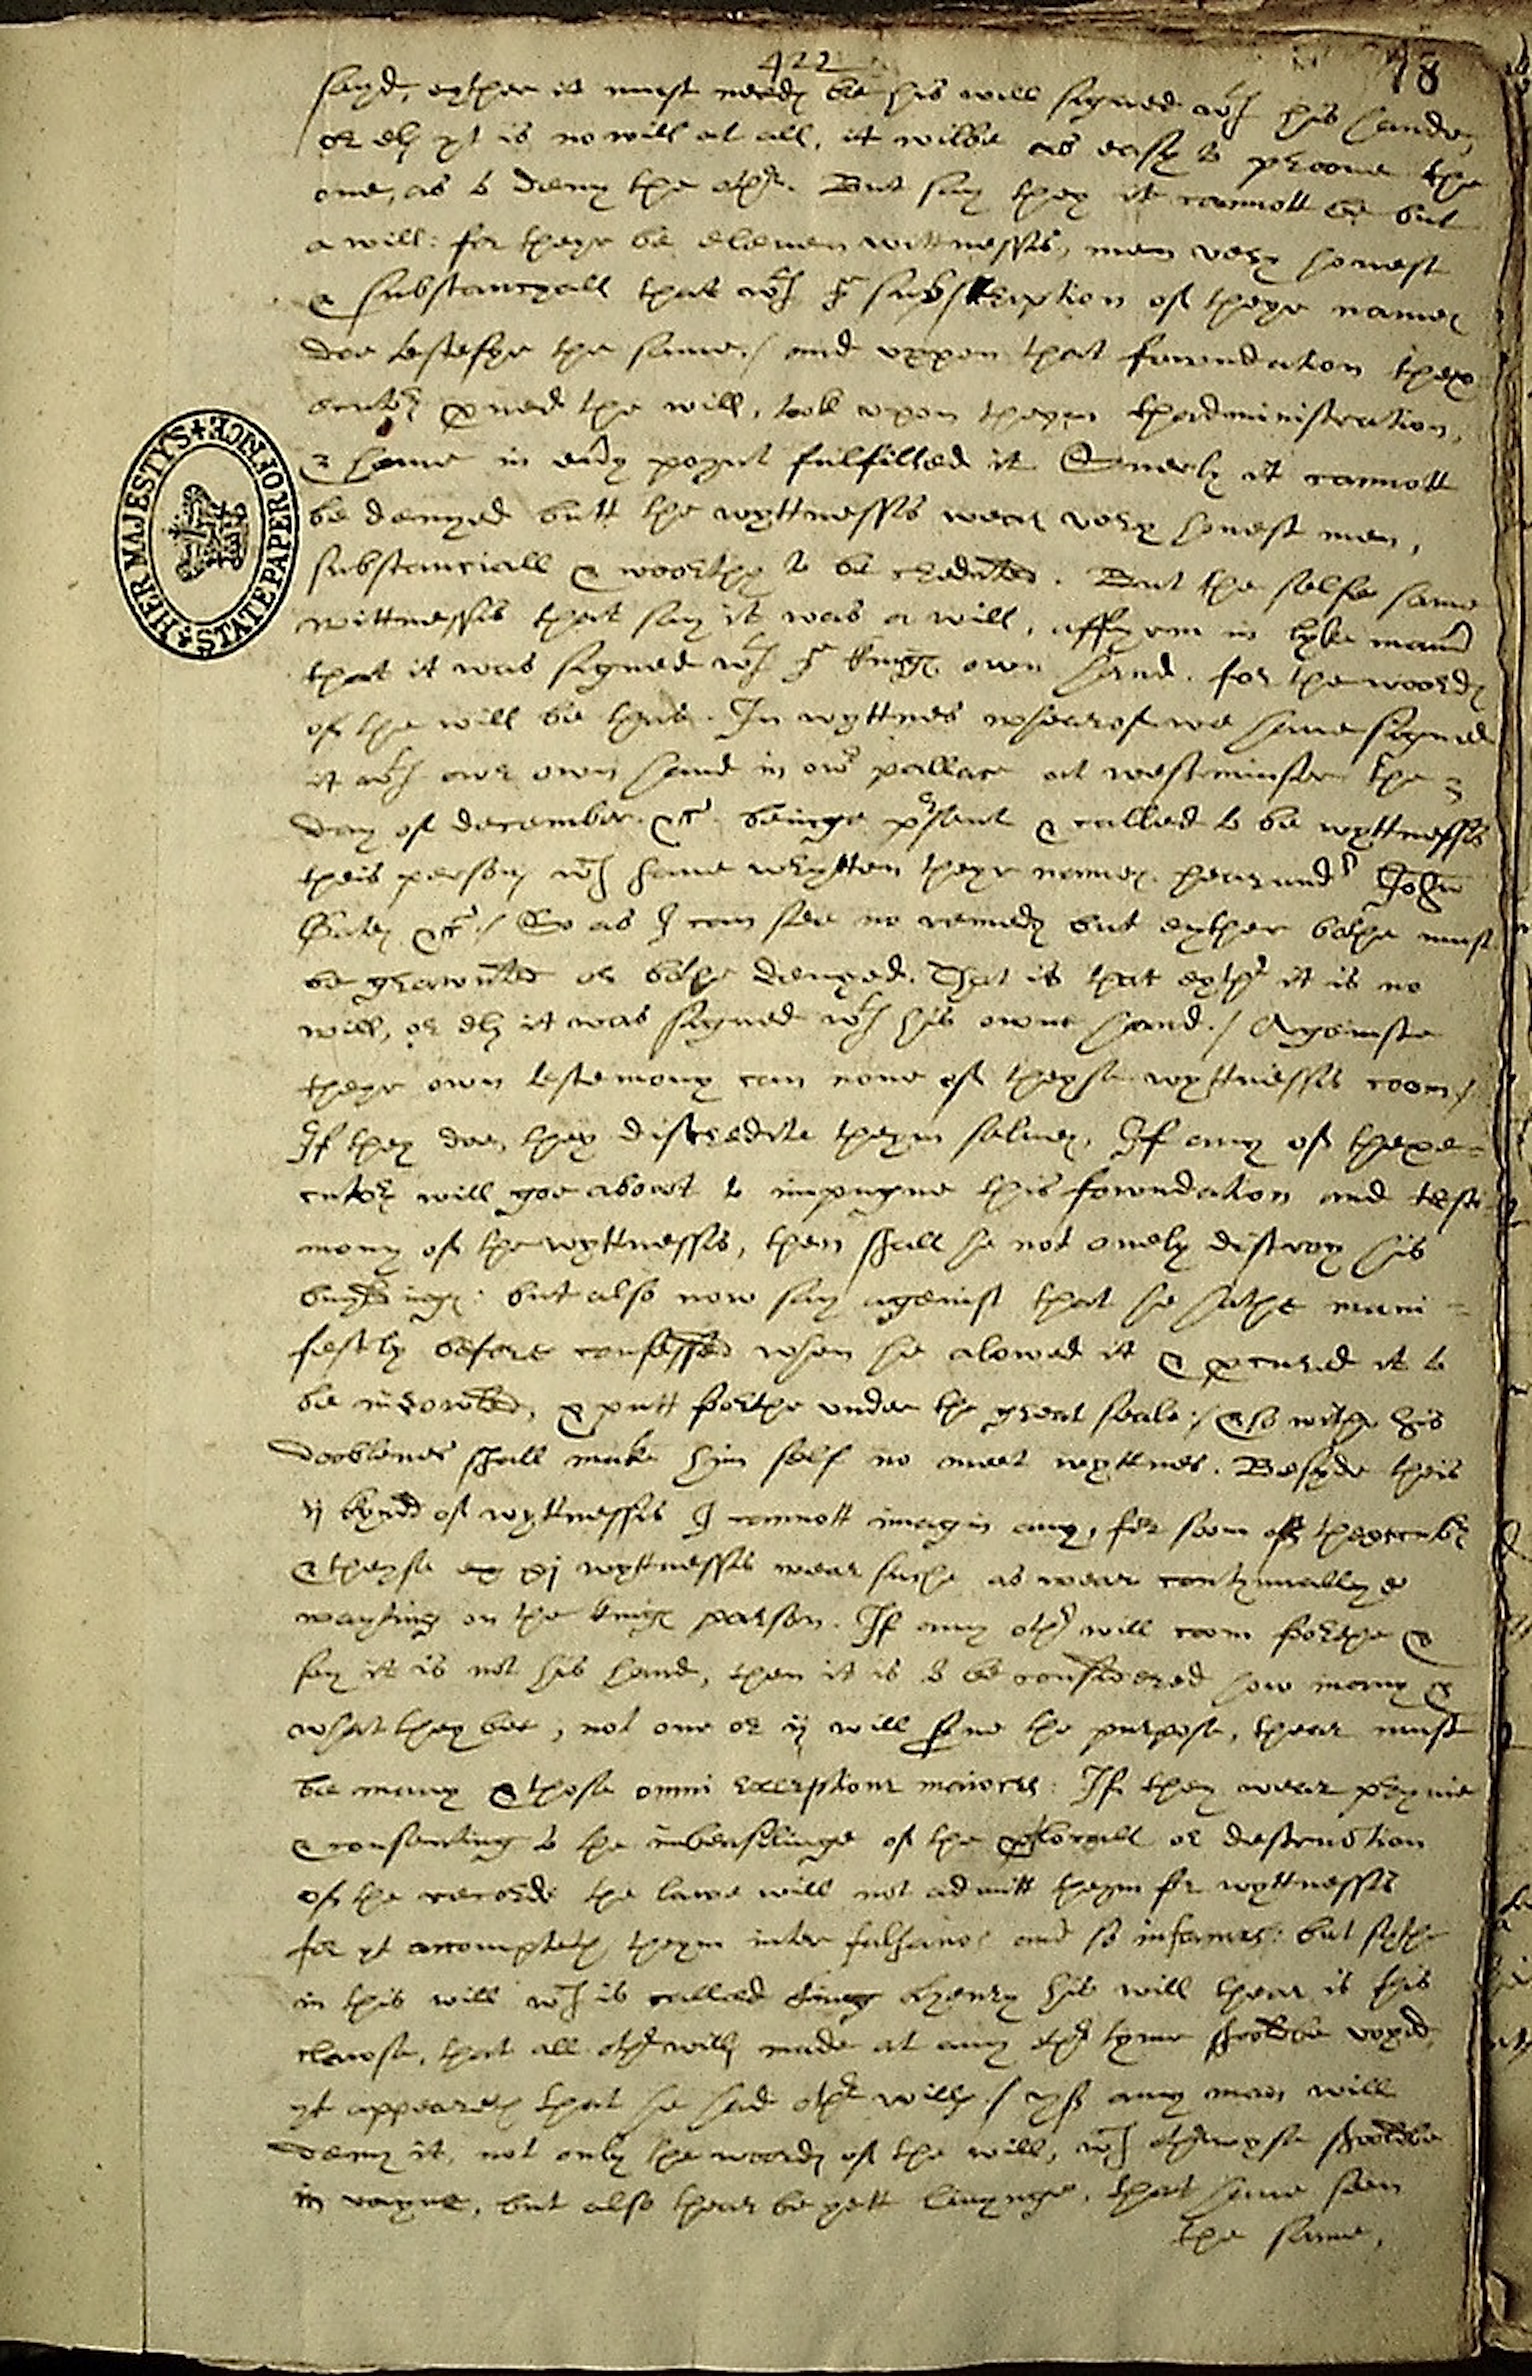 422
78
sayd, eyther it must needs be his will signed wth his hande,
or els yt is no will at all, it wilbe as easy to proove the
one, as to deny the other. But say they it cannott be but
a will: for theyr be eleven wittnessis, men very honest
& substancyall that wth ye subscription of theyr names
doe testefye the same./ and uppon that fowndation thexe
cutors proved the will, took upon theym thadministration,
& have in every poynt fulfilled it Suerly it cannott
be denyed butt the wyttnessis wear very honest men,
substanciall & woorthy to be credited. But the selfe same
wittnessis that say it was a will, affyrm in lyke maner
that it was signed wth ye kings own hand. for the woords
of the will be thus. In wyttnes whearof we have signed
it wth owr own hand in owr pallace at westminster the
day of december. &c. beinge present & called to be wyttnessis
theis persons wch have wrytten theyr names hearunder John
Gates &c./ So as I can see no remedy but eyther bothe must
be grawnted or bothe denyed. That is that eyther it is no
will, or els it was signed wth his owne hand./ Againste
theyr own testemony can none of theyse wyttnessis coom/
If they doe, they discredite theym selves. If any of thexe=
cutors will goe abowt to impugne this fowndation and testi
mony of the wyttnessis, then shall he not onely distroy his
buyldings: but also now say against that he hathe mani=
festly before confessed when he alowed it & procured it to
be inrowled, & putt forthe under the great seale:/ & so withe his
dooblenes shall make hym self no meet wyttnes. Besyde theis
ij kynds of wyttnessis I cannott imagin any, for soom of thexecutors
& theyse xj wyttnessis wear suche as wear contynually
wayting on the kings parson. If any other will coom forthe &
say it is not his hand, then it is to be considered how many &
what they bee, not one or ij will serve the purpose, thear must
be many & those omni exceptione maiores: If they wear pryvie
& consenting to the imbesilinge of the or destruction
of the records the lawe will not admitt theym for wyttnessis
for yt accompteth theym inter falsarios and so infames: but sythe
in this will wch is called king henry his will thear is this
clawse, that all other wills made at any other tyme shoolde be voyd,
yt appeareth that he had other wills / yf any man will
deny it, not only the woords of the will, wch otherwyse shoolde be
in vayne, but also thear be yett livynge, that have seen
the same,
HER MAJESTYS STATE PAPER OFFICE